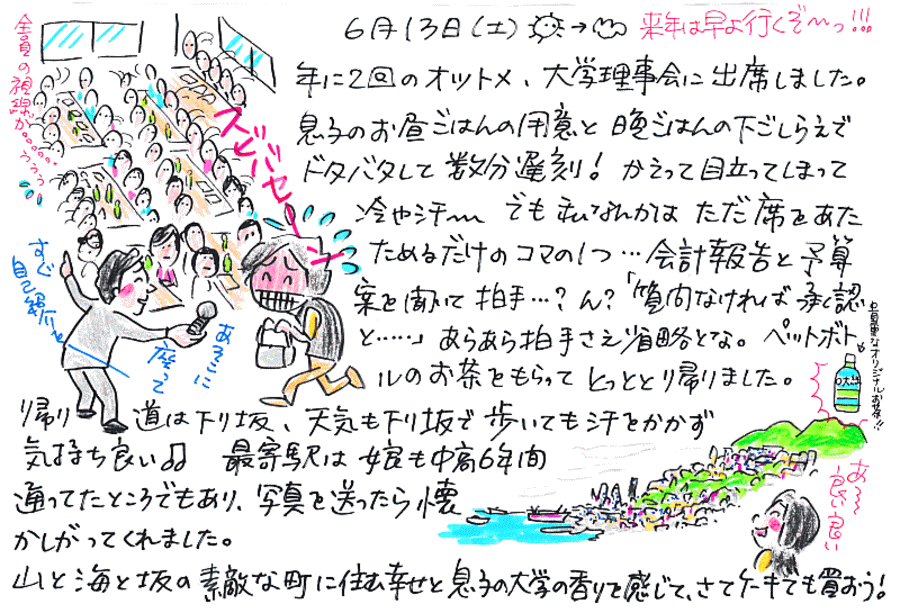 6月13日(土) ☀→☁ 来年は早よ行くぞ〜っ!!!
全員の視線が……ぅぅぅ…
年に2回のオットメ、大学理事会に出席しました。
息子のお昼ごはんの用意と晩ごはんの下ごしらえで
ドタバタして数分遅刻! かえって目立ってしまって
冷や汗〜 でも私なんかは ただ席をあた
ためるだけのコマの1つ…会計報告と予算
案を聞いて拍手…?ん?「質問なければ承認
と……」あらあら拍手さえ省略とな。ペットボト
ルのお茶をもらって とっととり帰りました。
スビバセーン
すぐ
自己紹介〜
あそこに
座って
貴重なオリジナルお茶!!
大
帰り道は下り坂、天気も下り坂で 歩いても汗をかかず
気持ち良い♫ 最寄駅は 娘も中高6年間
通ってたところでもあり、写真を送ったら懐
かしがってくれました。
あ〜
良い良い
山と海と坂の素敵な町に住む幸せと息子の大学の香りを感じて、さてケーキでも買おう!